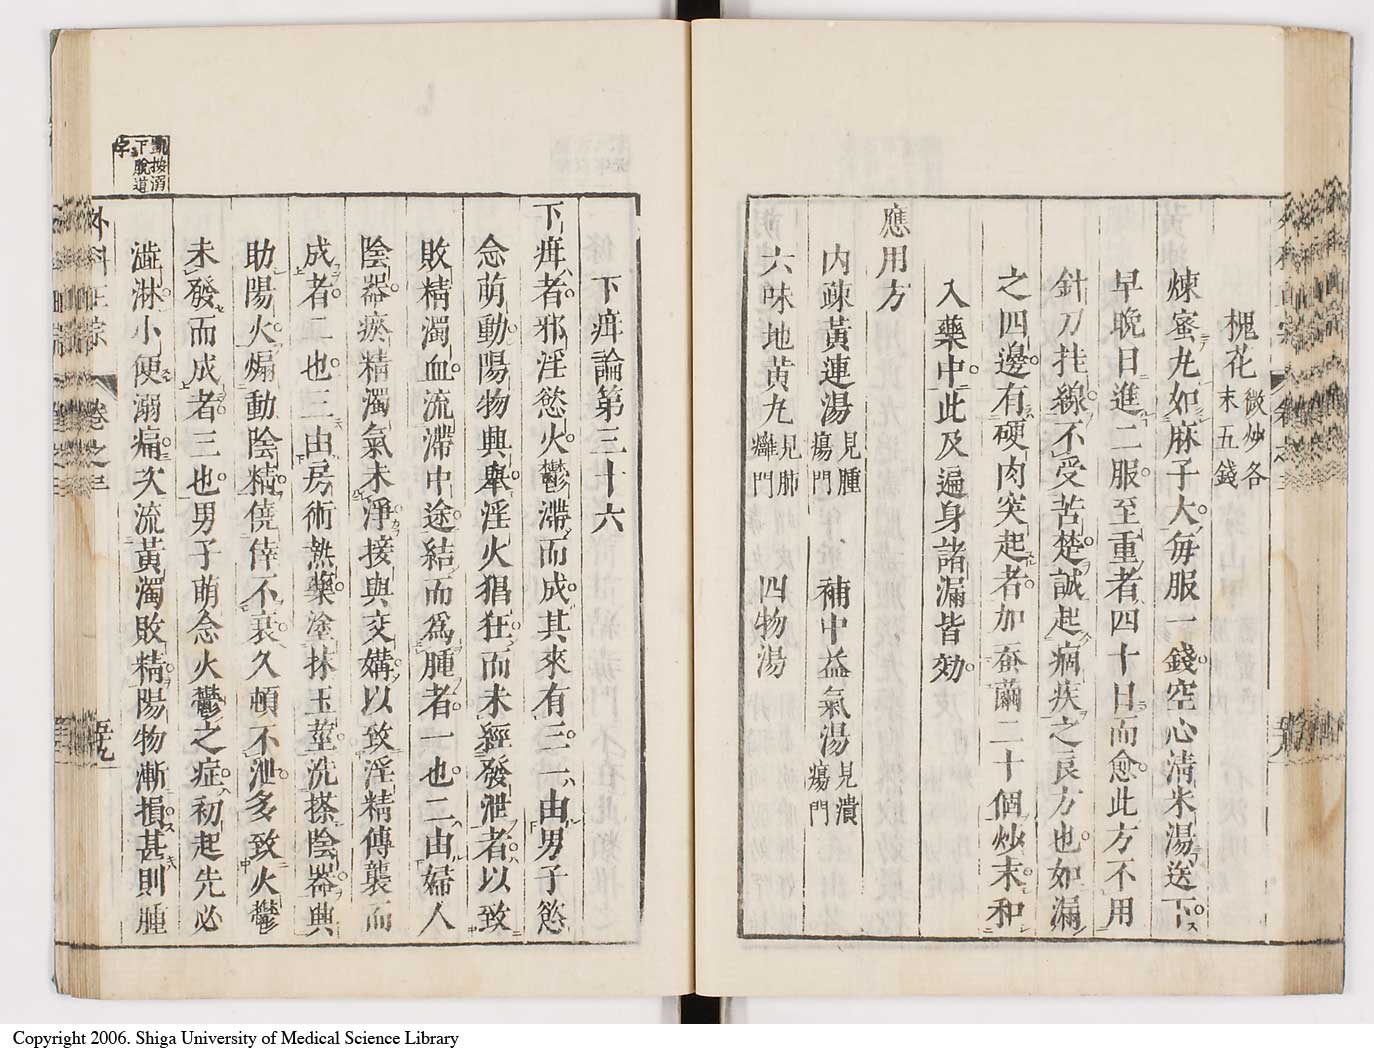 槐花微炒各末五錢
煉蜜丸如麻子大每服一錢空心清米湯送下
早晩日進二服至重者四十日而愈此方不用
針刀挂線不受苦楚誠起痼疾之良方也如漏
之四邊有硬肉突起者加蚕繭二十個炒末和
入藥中此及遍身諸漏皆効
應用方
内疎黃連湯見腫瘍門 補中益氣湯見潰瘍門
六味地黃丸見肺癰門 四物湯
下疳論第三十六
下疳者邪淫慾火鬱滯而成其來有三一由男子慾
念萌動陽物興舉淫火猖狂而未經發泄者以致
敗精濁血流滯中途結而爲腫者一也二由婦人
陰器瘀精濁氣未淨接與交媾以致淫精傳襲而
成者二也三由房術熱藥塗抹玉莖洗搽陰器興
助陽火煽動陰精僥倖不衰久頓不泄多致火鬱
未發而成者三也男子萌念火鬱之症初起先必
澁淋小便溺痛次流黃濁敗精陽物漸損甚則腫
凱按溺下脫道字
外科正宗 卷之三 五九
Copyright 2006. Shiga University of Medical Science Library